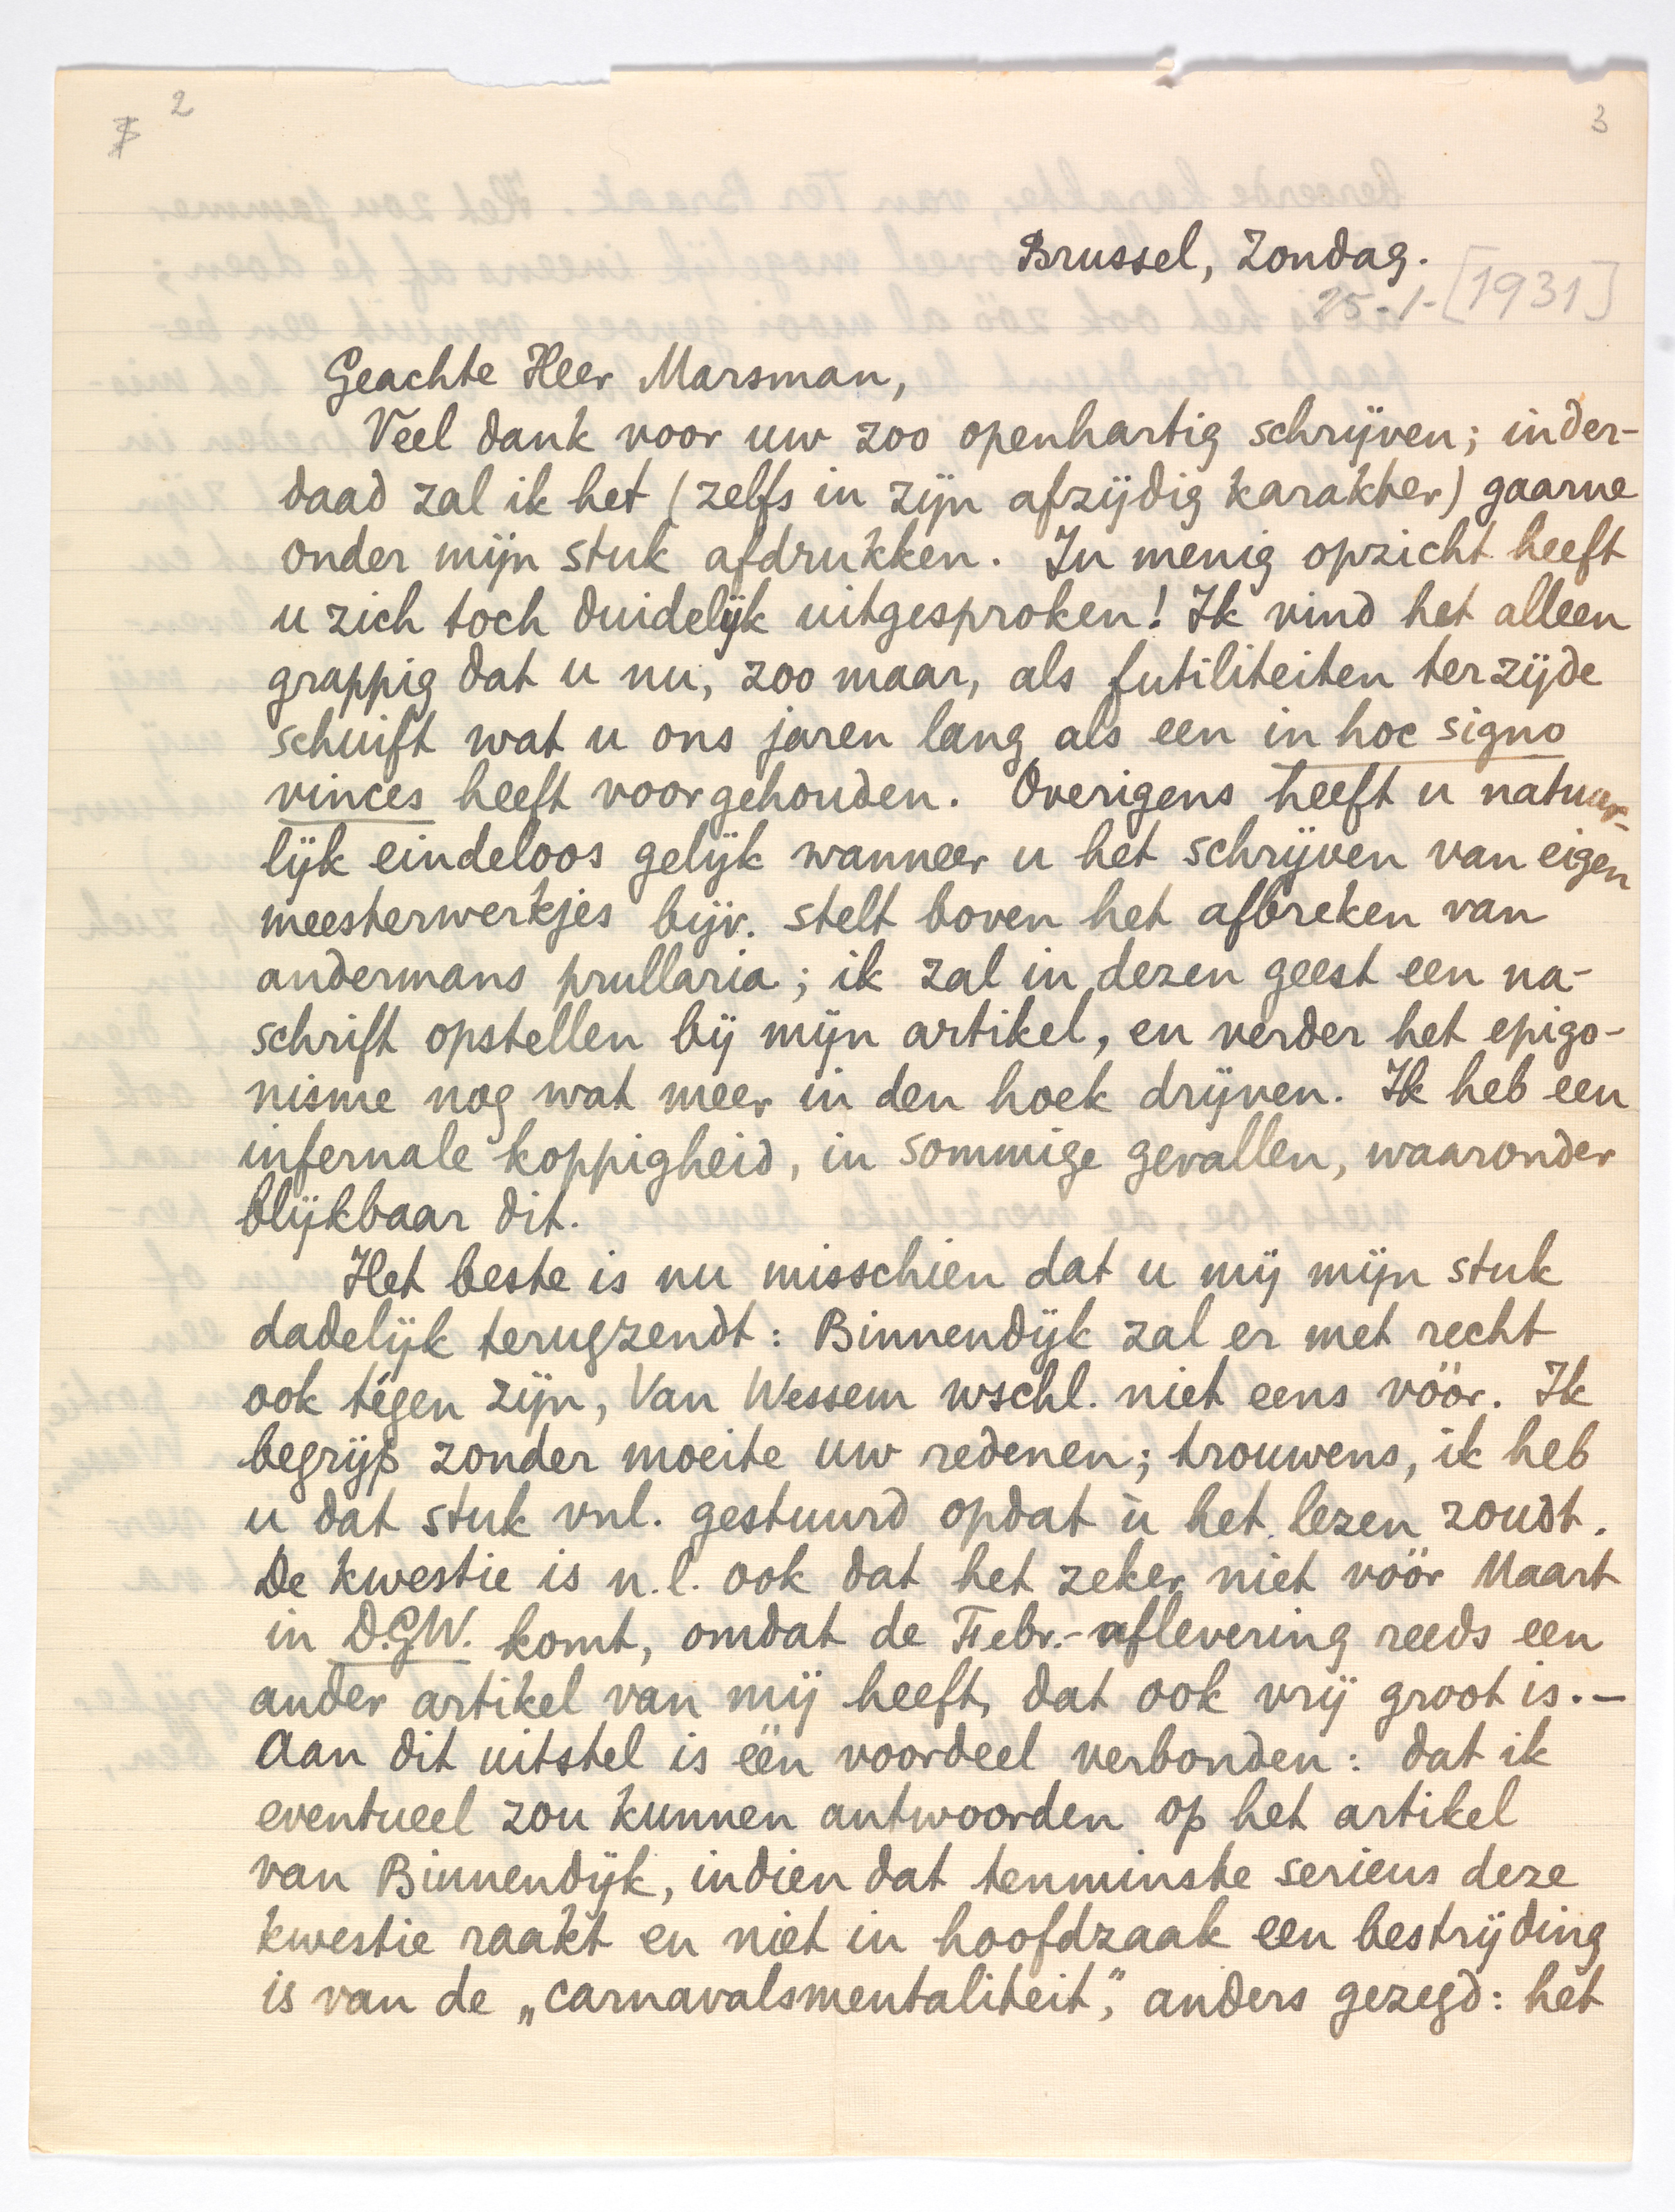 2
3
Brussel, Zondag.
25-1-[1931]
Geachte Heer Marsman,
Veel dank voor uw zoo openhartig schrijven; inder-
daad zal ik het (zelfs in zijn afzijdig karakter) gaarne
onder mijn stuk afdrukken. In menig opzicht heeft
u zich toch duidelijk uitgesproken! Ik vind het alleen
grappig dat u nu, zoo maar, als futiliteiten terzijde
schuift wat u ons jaren lang als een in hoc signo
vinces heeft voorgehouden. Overigens heeft u natuur-
lijk eindeloos gelijk wanneer u het schrijven van eigen
meesterwerkjes bijv. stelt boven het afbreken van
andermans prullaria; ik zal in dezen geest een na-
schrift opstellen bij mijn artikel, en verder het epigo-
nisme nog wat meer in den hoek drijven. Ik heb een
infernale koppigheid, in sommige gevallen, waaronder
blijkbaar dit.
Het beste is nu misschien dat u mij mijn stuk
dadelijk terugzendt: Binnendijk zal er met recht
ook tégen zijn, Van Wessem wschl. niet eens vóór. Ik
begrijp zonder moeite uw redenen; trouwens, ik heb
u dat stuk vnl. gestuurd opdat ù het lezen zoudt.
De kwestie is n.l. ook dat het zeker niet vóór Maart
in D.G.W. komt, omdat de Febr.-aflevering reeds een
ander artikel van mij heeft, dat ook vrij groot is.—
Aan dit uitstel is één voordeel verbonden: dat ik
eventueel zou kunnen antwoorden op het artikel
van Binnendijk, indien dat tenminste serieus deze
kwestie raakt en niet in hoofdzaak een bestrijding
is van de „carnavalsmentaliteit”, anders gezegd: het